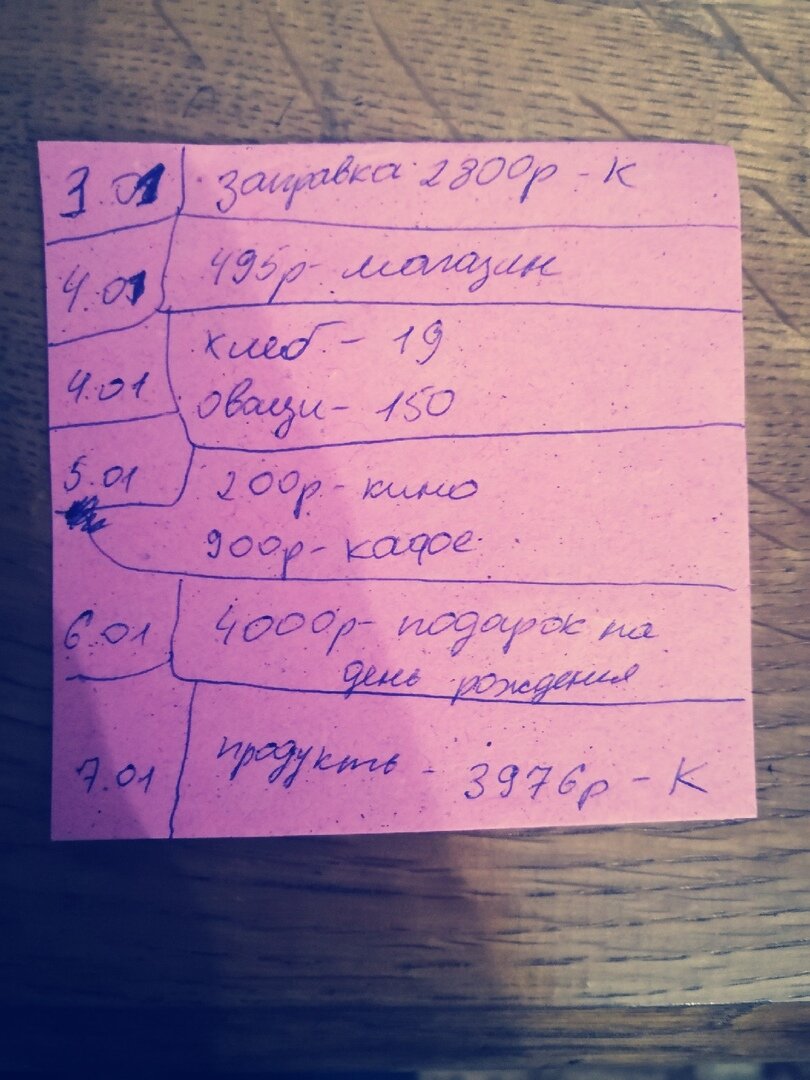 3.01 заправка 2800р - К
4.01 495р - магазин
4.01 хлеб - 19
оващи - 150
5.01 200р - кино
900р - кафе
6.01 4000р - подарок на
день рождения
7.01 продукты - 3976р - К